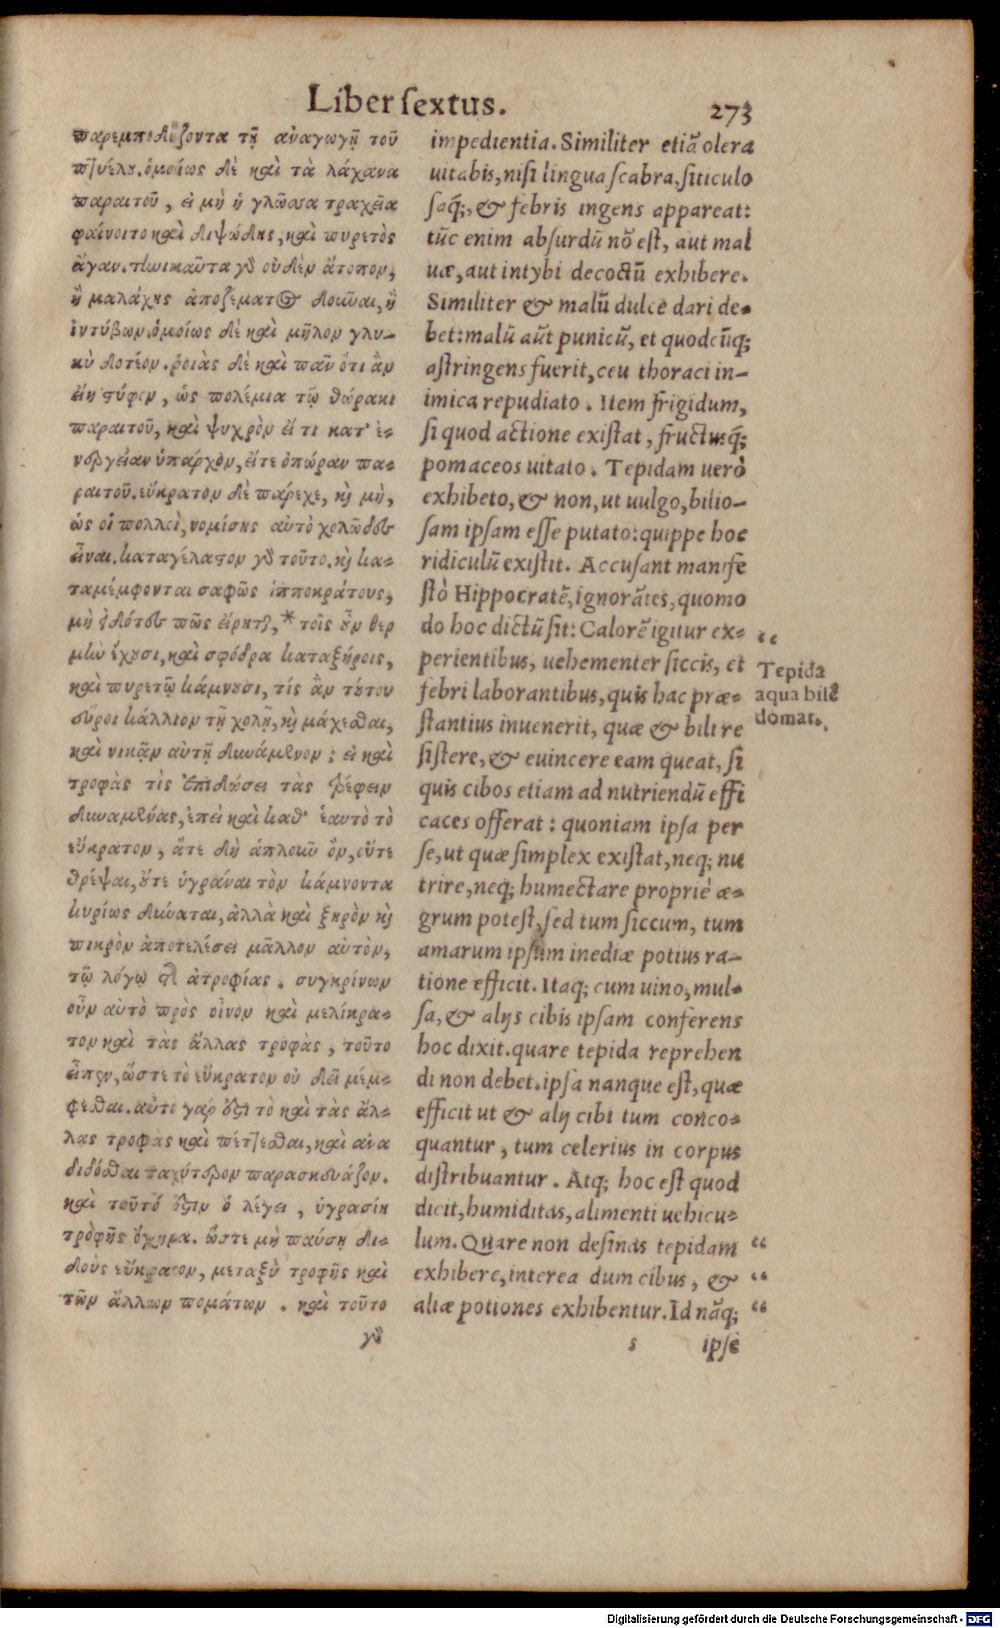 Liber sextus.
273
παρεμποδίζοντα τῇ ἀναγωγῇ τοῦ
πτυέλου. ὁμοίως δὲ καὶ τὰ λάχανα
παραιτοῦ, εἰ μὴ ἡ γλῶσσα τραχεῖα
φαίνοιτο καὶ διψώδης, καὶ πυρετὸς
ἄγαν. τηνικαῦτα γὰρ οὐδὲν ἄτοπον,
ἢ μαλάχης ἀποζέματος δοῦναι, ἢ
ἰντύβων. ὁμοίως δὲ καὶ μῆλον γλυ-
κὺ δοτέον. ῥοιὰς δὲ καὶ πᾶν ὅτι ἂν
εἴη στύφον, ὡς πολέμια τῷ θώρακι
παραιτοῦ, καὶ ψυχρὸν εἴ τι κατ' ἐ-
νέργειαν ὑπάρχον, εἴτε ὀπώραν πα-
ραιτοῦ. εὔκρατον δὲ πάρεχε, κὶ μὴ,
ὡς οἱ πολλοὶ, νομίσῃς αὐτὸ χολῶδες
εἶναι. καταγέλαστον γὰρ τοῦτο. κὶ κα-
ταμέμφονται σαφῶς ἱπποκράτους,
μὴ εἰδότες πῶς εἴρηται, * τοῖς οὖν θερ
μὴν ἔχουσι, καὶ σφόδρα καταξήροις,
καὶ πυρετῷ κάμνουσι, τίς ἂν τούτου
εὕροι κάλλιον τῇ χολῇ, κὶ μάχεσθαι,
καὶ νικᾷν αὐτῇ δυνάμενον; εἰ καὶ
τροφὰς τὶς ἐπιδώσει τὰς τρέφειν
δυναμένας, ἐπεὶ καὶ καθ' ἑαυτὸ τὸ
εὔκρατον, ἅτε δὴ ἁπλοῦν ὂν, οὔτε
θρέψαι, οὔτε ὑγράναι τὸν κάμνοντα
κυρίως δύναται, ἀλλὰ καὶ ξηρὸν κὶ
πικρὸν ἀποτελέσει μᾶλλον αὐτὸν,
τῷ λόγῳ τῆς ἀτροφίας. συγκρίνων
οὖν αὐτὸ πρὸς οἶνον καὶ μελίκρα-
τον καὶ τὰς ἄλλας τροφὰς, τοῦτο
εἶπεν, ὥστε τὸ εὔκρατον οὐ δεῖ μέμ-
φεσθαι. αὐτὸ γάρ ἐστι τὸ καὶ τὰς ἄλ-
λας τροφὰς καὶ πέττεσθαι, καὶ ἀνα
δίδοσθαι ταχύτερον παρασκευάζον.
καὶ τοῦτό ἐστιν ὁ λέγει, ὑγρασίη
τροφῆς ὄχημα. ὥστε μὴ παύσῃ δι-
δοὺς εὔκρατον, μεταξὺ τροφῆς καὶ
τῶν ἄλλων πομάτων. καὶ τοῦτο
γὰρ
impedientia. Similiter etiã olera
uitabis, nisi lingua scabra, siticulo
saq́;, & febris ingens appareat:
tũc enim absurdũ nõ est, aut mal
uæ, aut intybi decoctũ exhibere.
Similiter & malũ dulce dari de-
bet: malũ aũt punicũ, et quodcũq;
astringens fuerit, ceu thoraci in-
imica repudiato. Item frigidum,
si quod actione existat, fructusq́;
pomaceos uitato. Tepidam uerò
exhibeto, & non, ut uulgo, bilio-
sam ipsam esse putato: quippe hoc
ridiculũ existit. Accusant manife
stò Hippocratẽ, ignorãtes, quomo
do hoc dictũ sit: Calorẽ igitur ex-
perientibus, uehementer siccis, et
febri laborantibus, quis hac præ-
stantius inuenerit, quæ & bili re
sistere, & euincere eam queat, si
quis cibos etiam ad nutriendũ effi
caces offerat: quoniam ipsa per
se, ut quæ simplex existat, neq; nu
trire, neq; humectare propriè æ-
grum potest, sed tum siccum, tum
amarum ipsum inediæ potius ra-
tione efficit. Itaq; cum uino, mul-
sa, & alijs cibis ipsam conferens
hoc dixit. quare tepida reprehen
di non debet. ipsa nanque est, quæ
efficit ut & alij cibi tum conco-
quantur, tum celerius in corpus
distribuantur. Atq; hoc est quod
dicit, humiditas, alimenti uehicu-
lum. Quare non desinas tepidam “
exhibere, interea dum cibus, & “
aliæ potiones exhibentur. Id nãq; “
s ipse
“
Tepida
aqua bilẽ
domat.
Digitalisierung gefördert durch die Deutsche Forschungsgemeinschaft - DFG